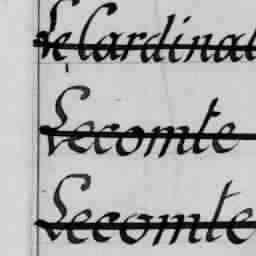 Le Cardinal
Lecomte
Lecomte